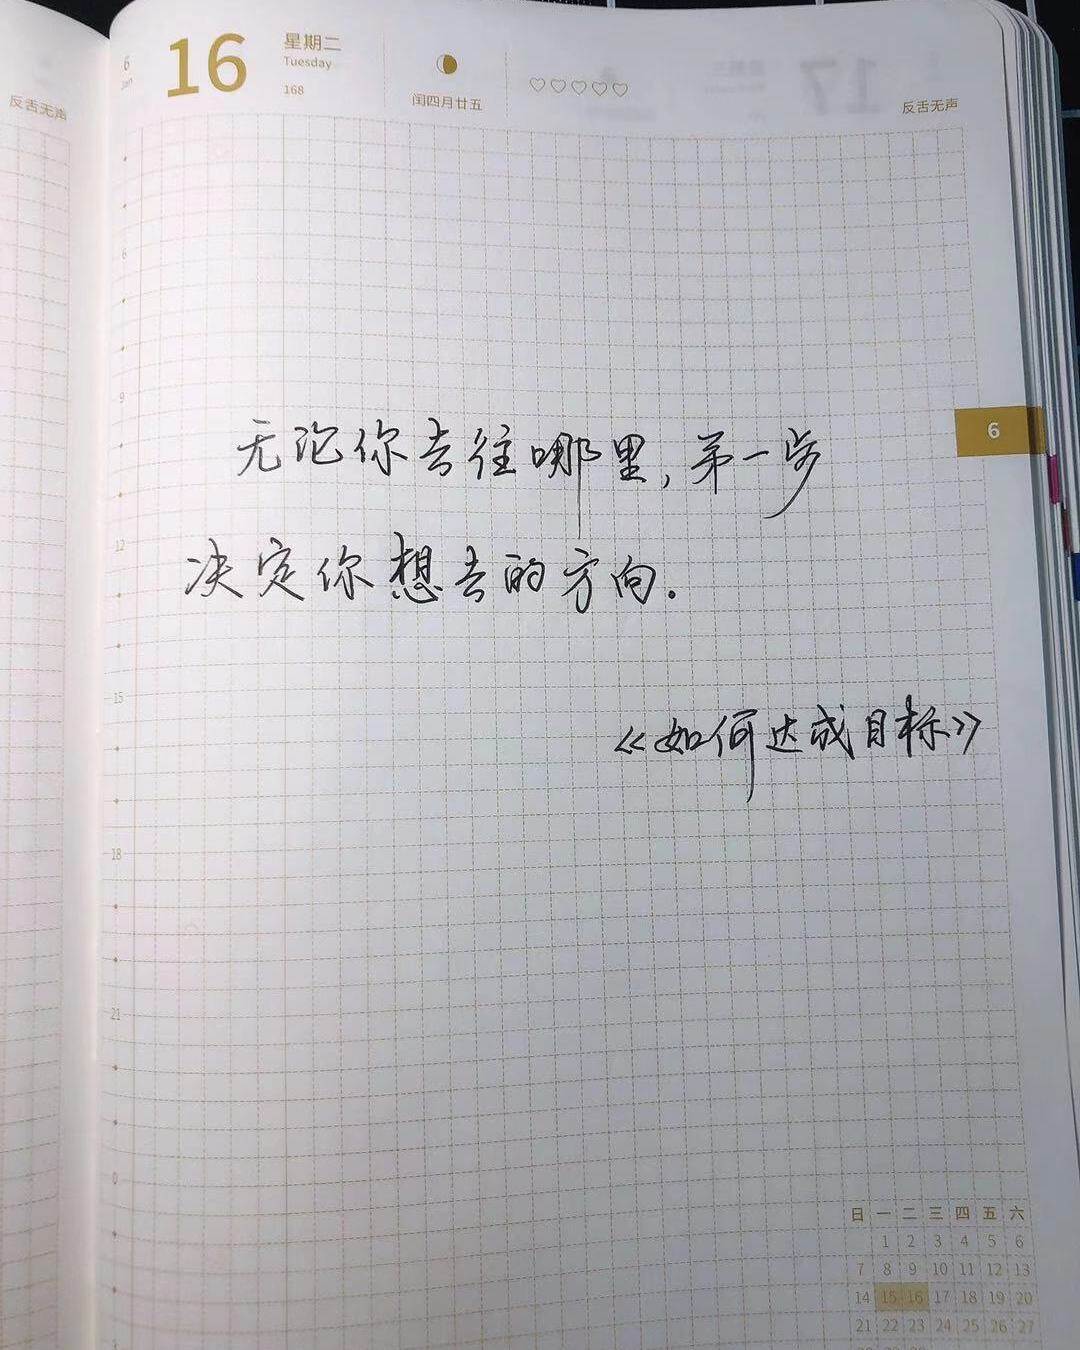 6
Jan
16
星期二
Tuesday
168
闰四月廿五
♡♡♡♡♡
反舌无声
反舌无声
6
9
12
15
18
21
0
6
无论你去往哪里,第一步
决定你想去的方向.
《如何达成目标》
日 一 二 三 四 五 六
1 2 3 4 5 6
7 8 9 10 11 12 13
14 15 16 17 18 19 20
21 22 23 24 25 26 27